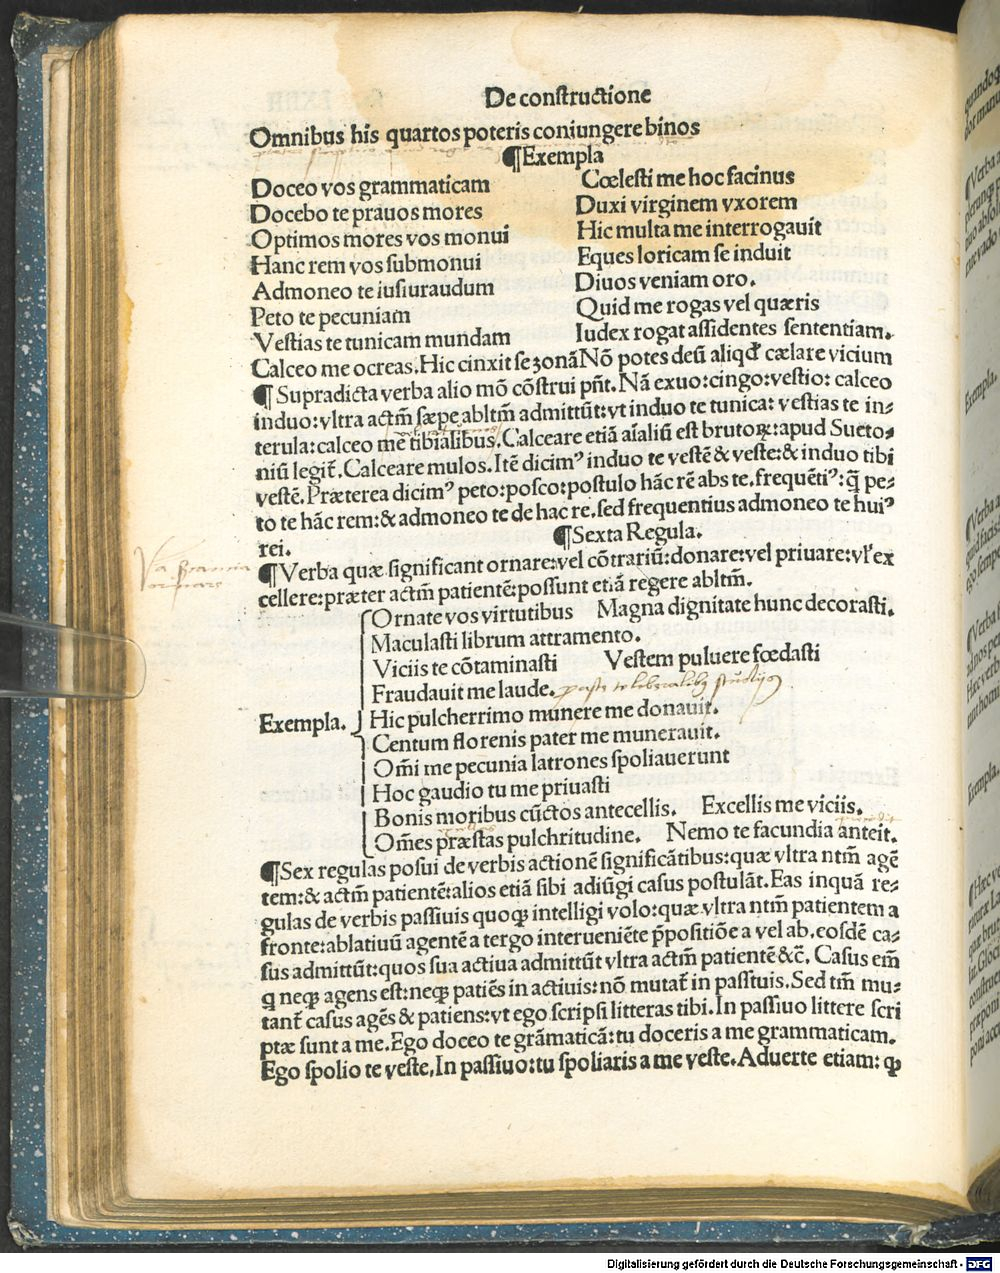 De constructione
Omnibus his quartos poteris coniungere binos
¶Exempla
Doceo vos grammaticam
Docebo te prauos mores
Optimos mores vos monui
Hanc rem vos submonui
Admoneo te iusiuraudum
Peto te pecuniam
Vestias te tunicam mundam
Cœlesti me hoc facinus
Duxi virginem vxorem
Hic multa me interrogauit
Eques loricam se induit
Diuos veniam oro.
Quid me rogas vel quæris
Iudex rogat assidentes sententiam.
Calceo me ocreas. Hic cinxit se zonā Nō potes deū aliqd̛ cælare vicium
¶ Supradicta verba alio mō cōstrui pn̄t. Nā exuo: cingo: vestio: calceo
induo: vltra actm̄ sæpe abltm̄ admittūt: vt induo te tunica: vestias te in⸗
terula: calceo me tibialibus. Calceare etiā aīaliū est brutoꝝ: apud Sueto⸗
niū legit̄. Calceare mulos. Itē dicimꝰ induo te vestē & veste: & induo tibi
vestē. Præterea dicimꝰ peto: posco: postulo hāc rē abs te. frequētiꝰ: q̄̄ pe⸗
to te hāc rem: & admoneo te de hac re. sed frequentius admoneo te huiꝰ
rei.
¶Sexta Regula.
¶Verba quæ significant ornare: vel cōtrariū: donare: vel priuare: vl̛ ex
cellere: præter actm̄ patientē: possunt etiā regere abltm̄.
Exempla.
Ornate vos virtutibus Magna dignitate hunc decorasti.
Maculasti librum attramento.
Viciis te cōtaminasti Vestem puluere fœdasti
Fraudauit me laude.
Hic pulcherrimo munere me donauit.
Centum florenis pater me munerauit.
Om̄i me pecunia latrones spoliauerunt
Hoc gaudio tu me priuasti
Bonis moribus cūctos antecellis. Excellis me viciis.
Om̄es præstas pulchritudine. Nemo te facundia anteit.
¶Sex regulas posui de verbis actionē significātibus: quæ vltra ntm̄ agē
tem: & actm̄ patientē: alios etiā sibi adiūgi casus postulāt. Eas inquā re⸗
gulas de verbis passiuis quoqꝫ intelligi volo: quæ vltra ntm̄ patientem a
fronte: ablatiuū agentē a tergo interueniēte p̄positiōe a vel ab. eosdē ca⸗
sus admittūt: quos sua actiua admittūt vltra actm̄ patientē &c̄. Casus eīm
q neqꝫ agens est: neqꝫ patiēs in actiuis: nō mutat̄ in passiuis. Sed tm̄ mu⸗
tant̄ casus agēs & patiens: vt ego scripsi litteras tibi. In passiuo littere scri
ptæ sunt a me. Ego doceo te grāmaticā: tu doceris a me grammaticam.
Ego spolio te veste. In passiuo: tu spoliaris a me veste. Aduerte etiam: ꝙ
Digitalisierung gefördert durch die Deutsche Forschungsgemeinschaft - DFG